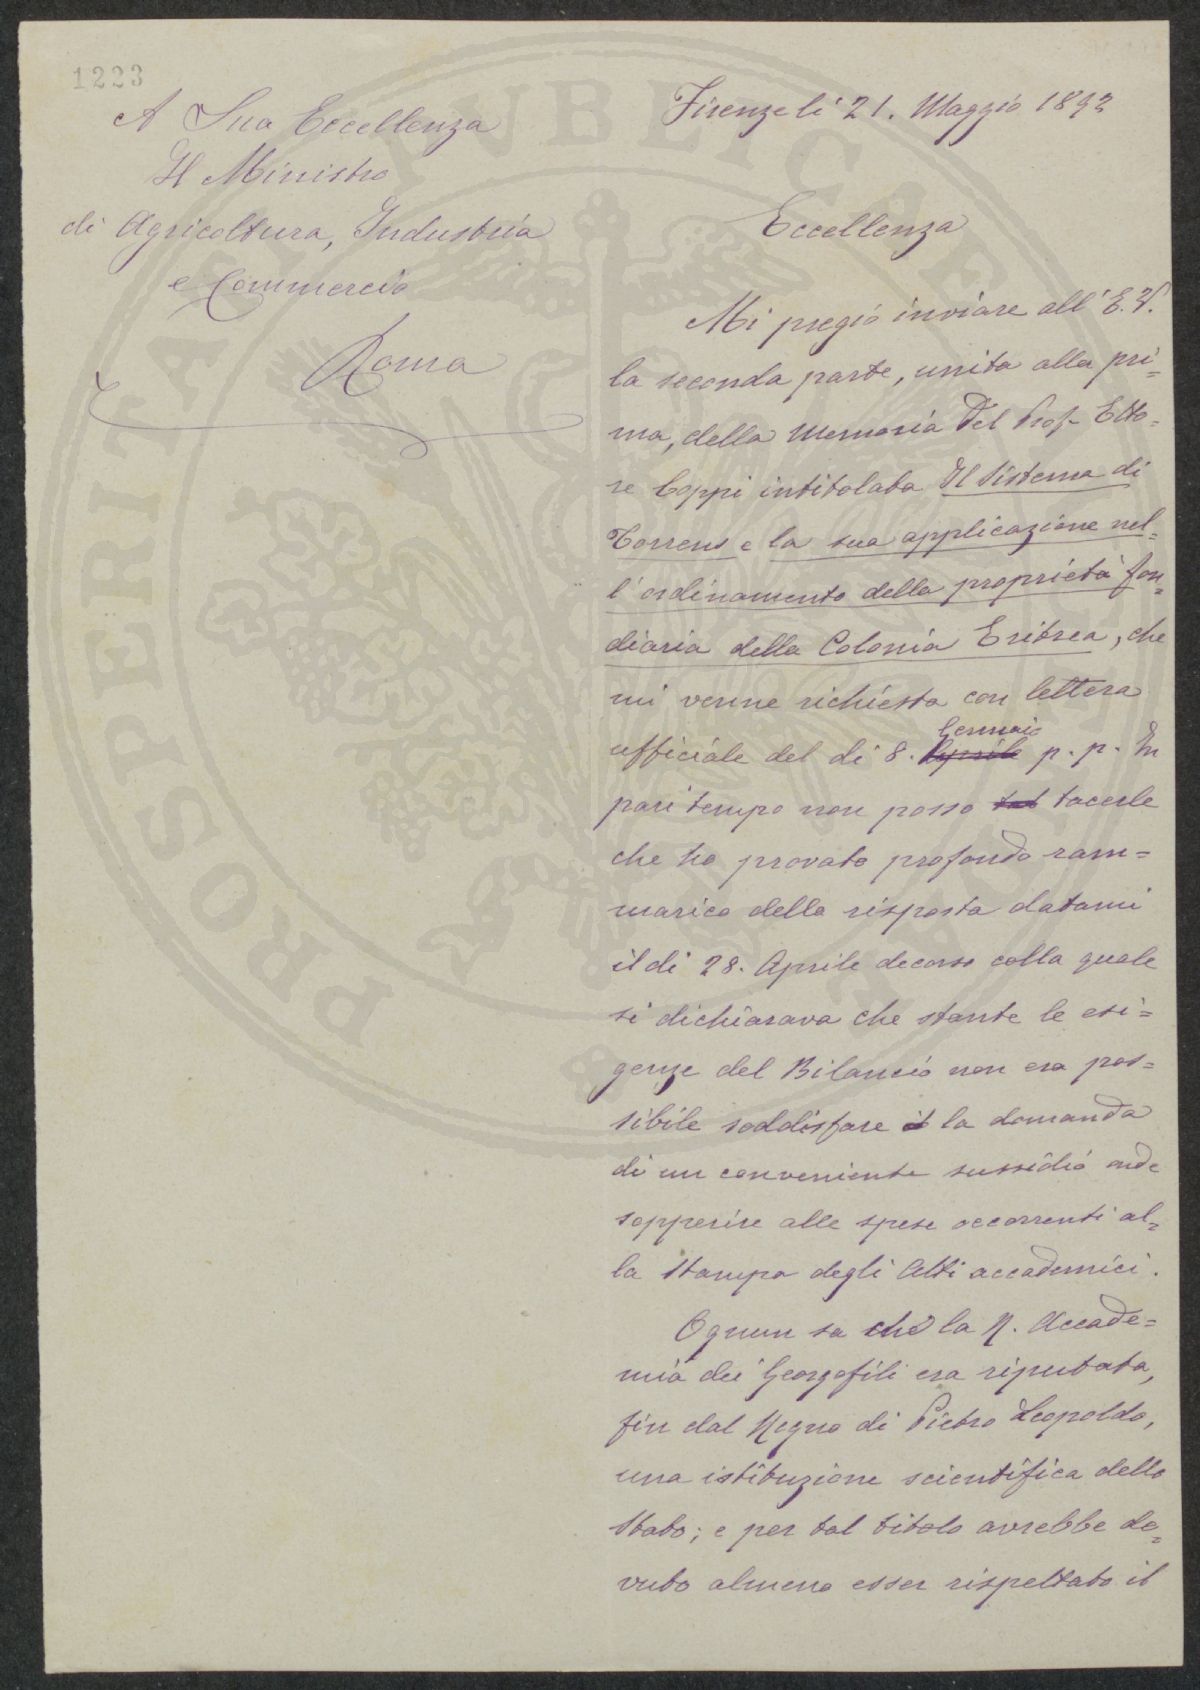 1223
A Sua Eccellenza
Il Ministro
di Agricoltura, Industria
e Commercio
Roma
Firenze lì 21. Maggio 1892
Eccellenza
Mi pregio inviare all'E.V.
la seconda parte, unita alla pri=
ma, della Memoria del Prof. Etto=
re Coppi intitolata Il Sistema di
Torrens e la sua applicazione nel=
l'ordinamento della proprietà fon=
diaria della Colonia Eritrea, che
mi venne richiesta con lettera
Gennaio
ufficiale del dì 8. Aprile p. p. In
pari tempo non posso tacerle
che ho provato profondo ram=
marico della risposta datami
il dì 28. Aprile decorso colla quale
si dichiarava che stante le esi=
genze del Bilancio non era pos=
sibile soddisfare la domanda
di un conveniente sussidio onde
sopperire alle spese occorrenti al=
la Stampa degli Atti accademici.
Ognun sa che la R. Accade=
mia dei Georgofili era riputata,
fin dal Regno di Pietro Leopoldo,
una istituzione scientifica dello
Stato; e per tal titolo avrebbe do=
vuto almeno esser rispettato il
PROSPERITAS PVBLICAE